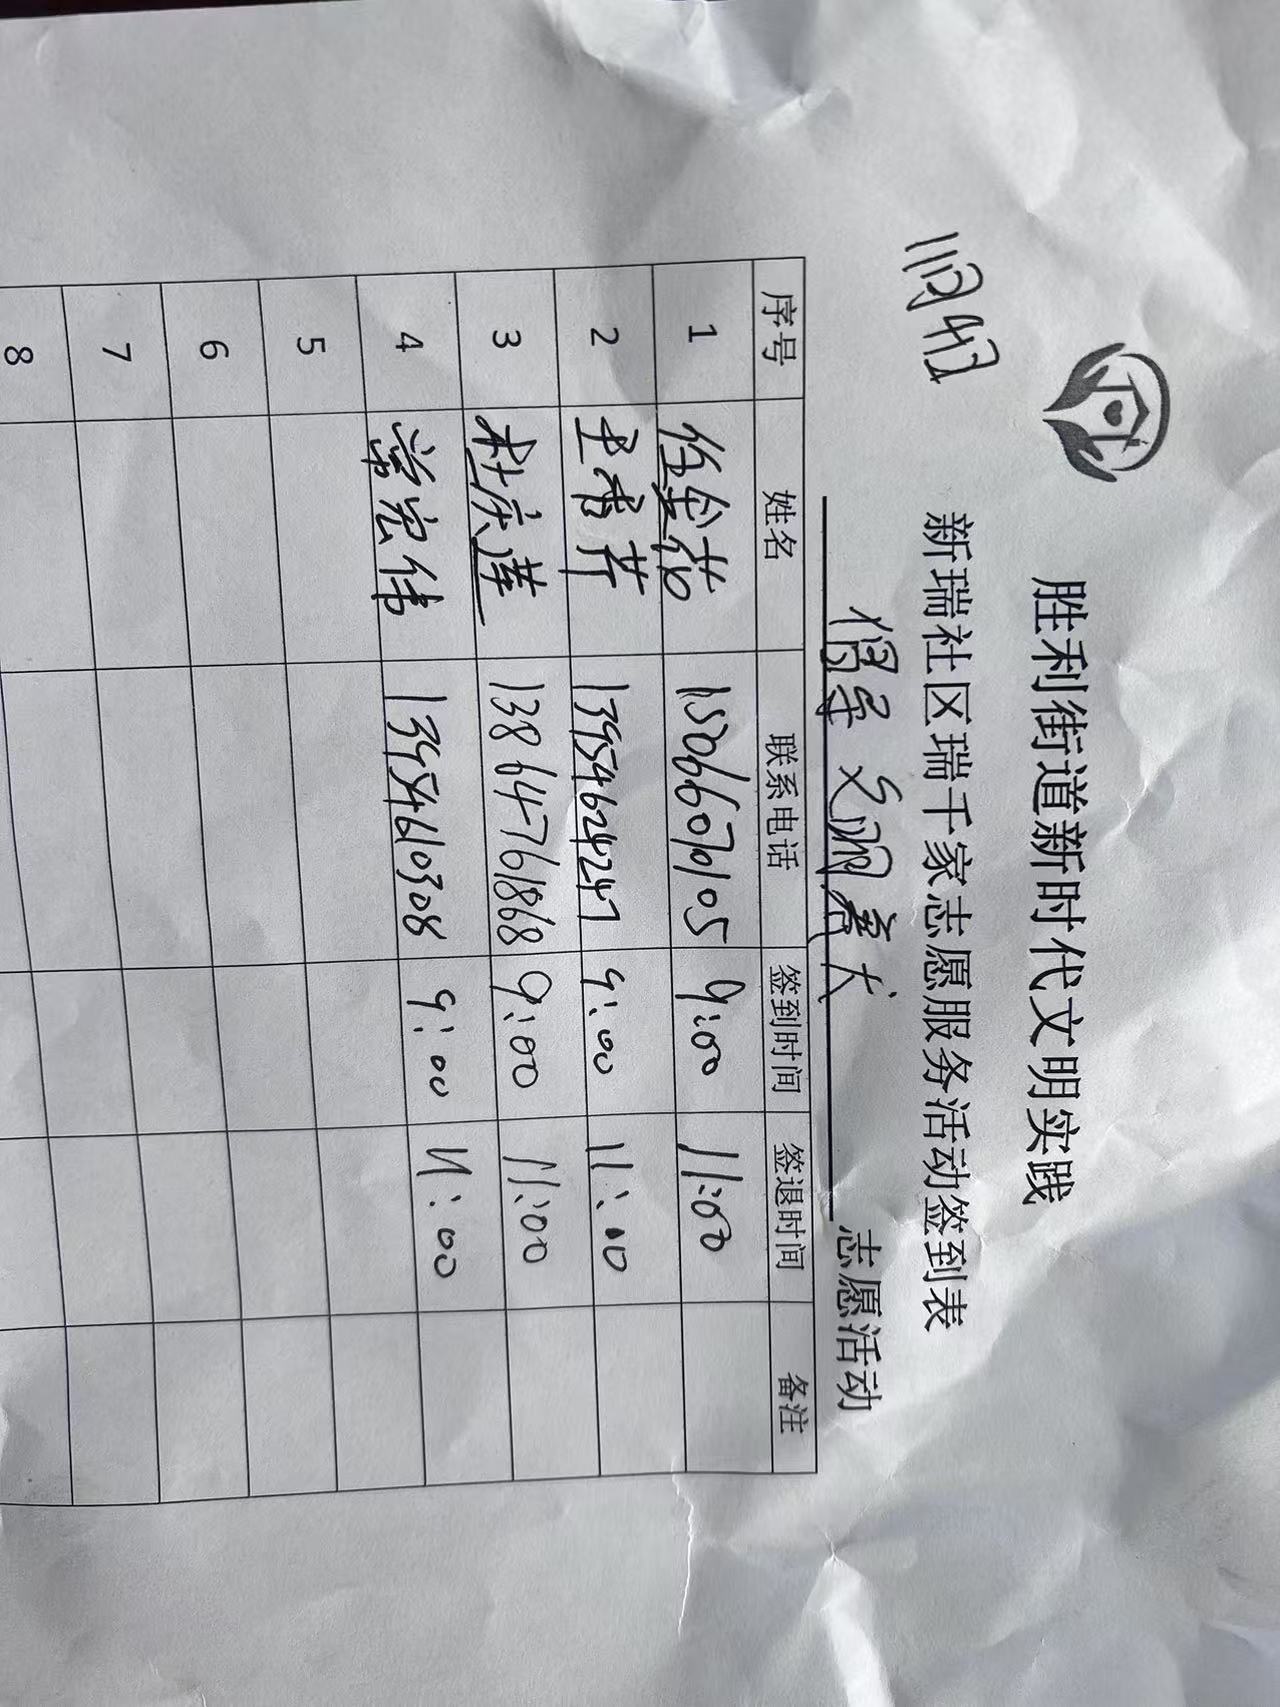 胜利街道新时代文明实践
新瑞社区瑞千家志愿服务活动签到表
11月4日
倡导文明养犬 志愿活动
序号 姓名 联系电话 签到时间 签退时间 备注
1 任金花 15066070105 9:00 11:00
2 王春芳 13954624247 9:00 11:00
3 杜庆莲 13864761868 9:00 11:00
4 常宏伟 13954610308 9:00 11:00
5
6
7
8